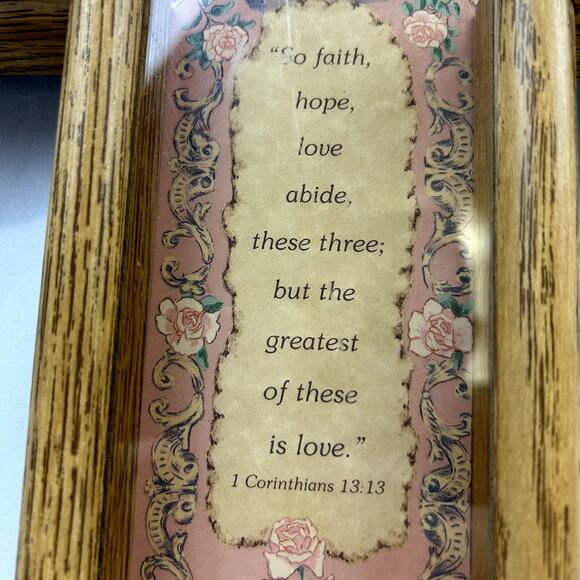 “So faith,
hope,
love
abide,
these three;
but the
greatest
of these
is love.”
1 Corinthians 13:13